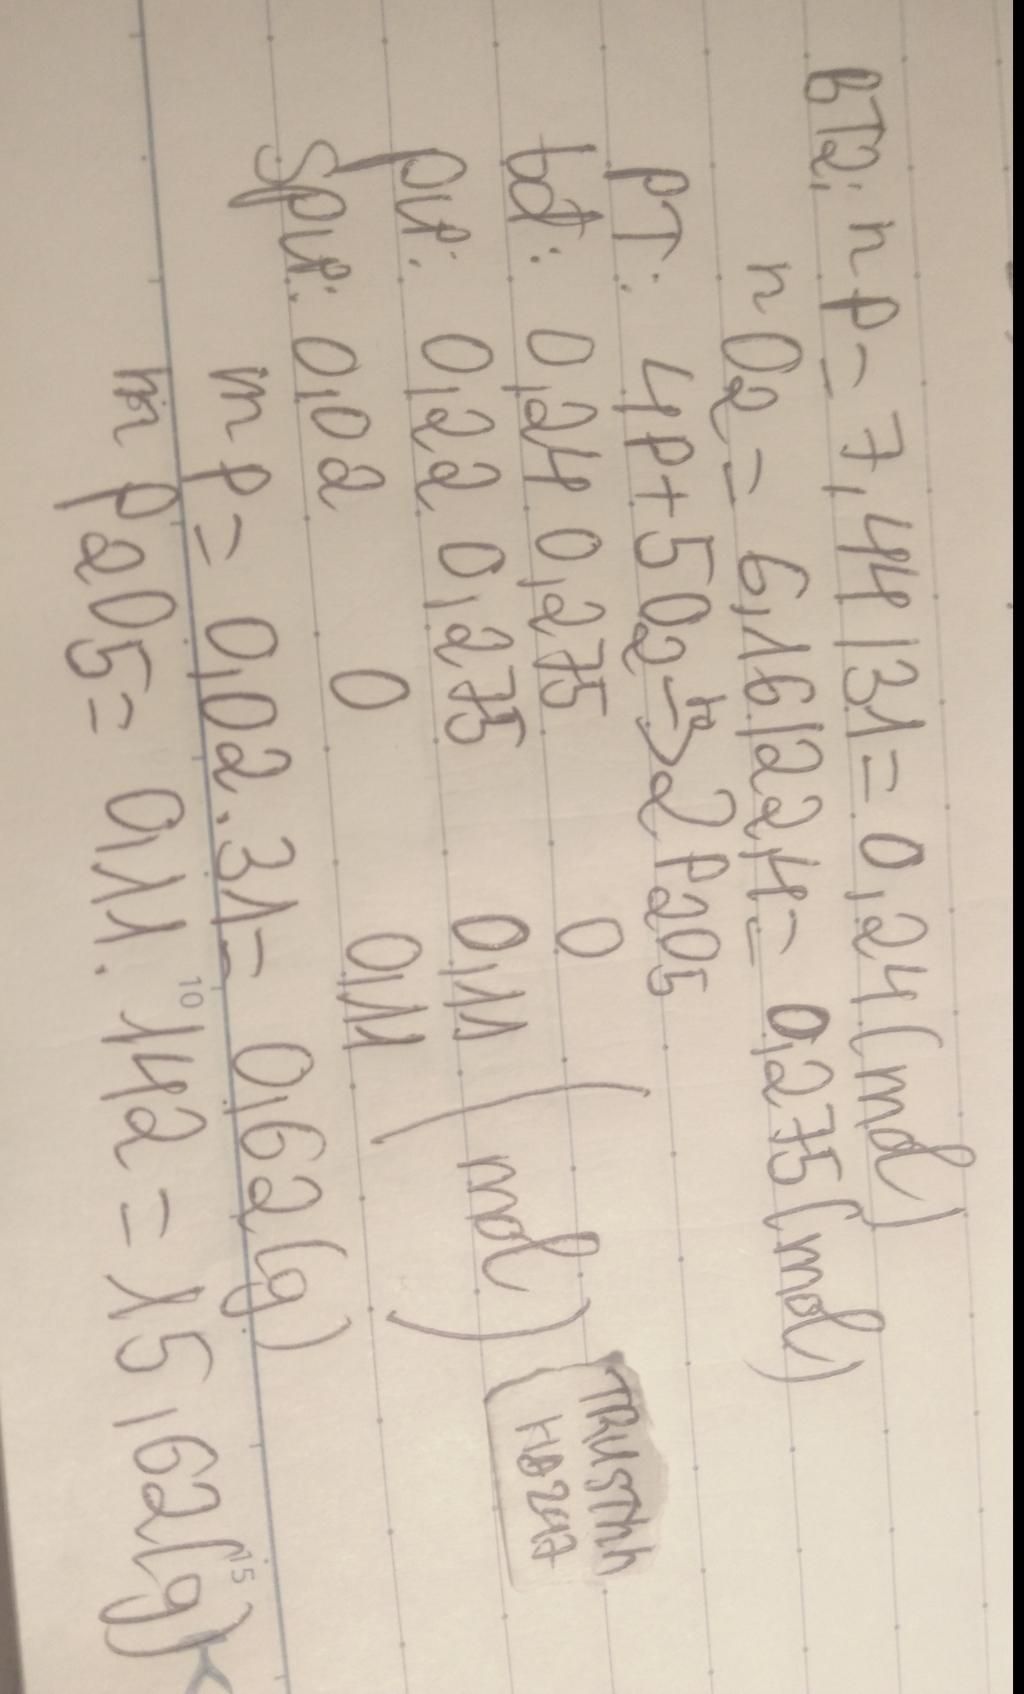 BT2: nP = 7,44/31 = 0,24 (mol)
nO2 = 6,16/22,4 = 0,275 (mol)
PT: 4P + 5O2 -to-> 2P2O5
bđ: 0,24 0,275 0
pư: 0,22 0,275 0,11 (mol)
Spư: 0,02 0 0,11
mP = 0,02.31 = 0,62 (g)
mP2O5 = 0,11.142 = 15,62 (g)
TRUSThh
HD247
10
15